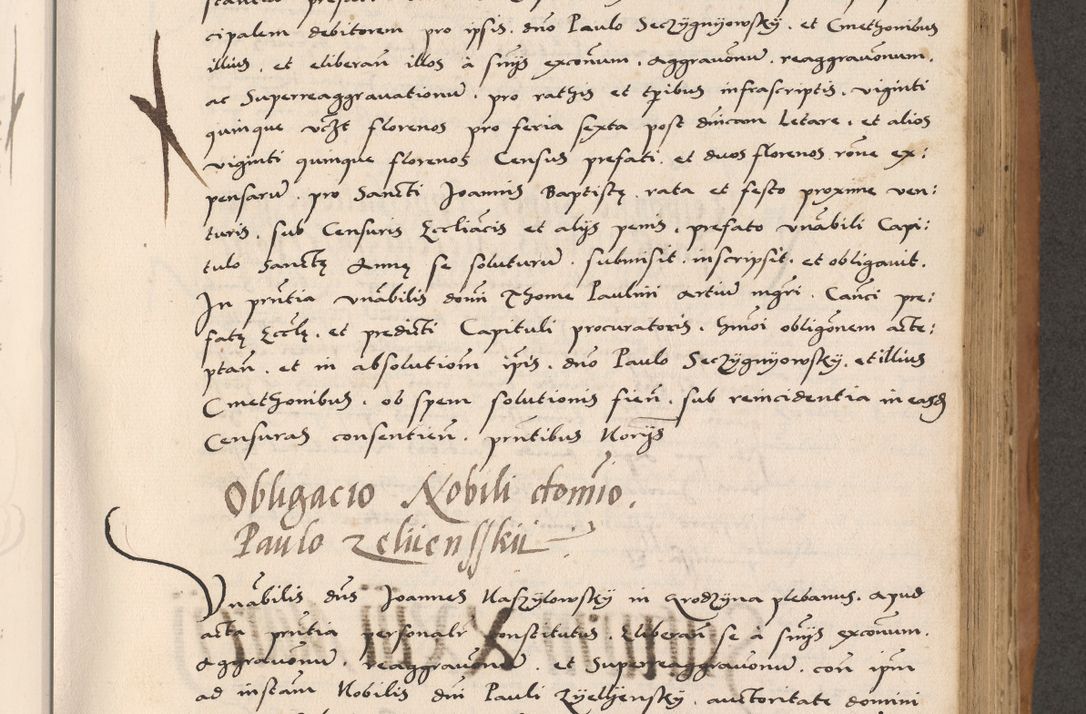 cipalem debitorem pro ipsis. dno Paulo Seczygnyowsky. et Cmethonibus
illius. et eliberan illos à snijs exconum. aggrauonu. reaggrauonum.
ac Superreaggrauationu. pro rathis et tpibus infrascriptis. viginti
quinque vczt florenos pro feria sexta post dnicam Letare. et alios
viginti quinque florenos Census prefati. et duos florenos rone ex:
pensaru. pro Sancti Joannis Baptistę. rata et festo proxime ven:
turis. sub Censuris Eccliacis et alijs penis. prefato vnabili Capi:
tulo Sanctę Annę se soluturu. submisit. inscripsit. et obligauit.
In pntia vnabilis domi Thome Paulini artiu mgri. Canci pre:
fatę Ecclę. et predicti Capituli procuratoris. hmoi obligonem acte:
ptan. et in absolutiom ipsis. dno Paulo Seczygnyowsky. et illius
Cmethonibus. ob spem solutionis fien. sub reincidentia in easd
Censuras consentien. pntibus Norijs
Obligacio Nobili domio.
Paulo Zeliiensskii
Vnabilis dns Joannes Naszylowsky in Grodzyna plebanus. apud
acta pntia personalr constitutus. Eliberan se à snijs exconum.
aggrauonu. reaggrauonu. et Superreaggrauonu. con ipm
ad instam Nobilis dni Pauli Zyelyensky. auctoritate domini